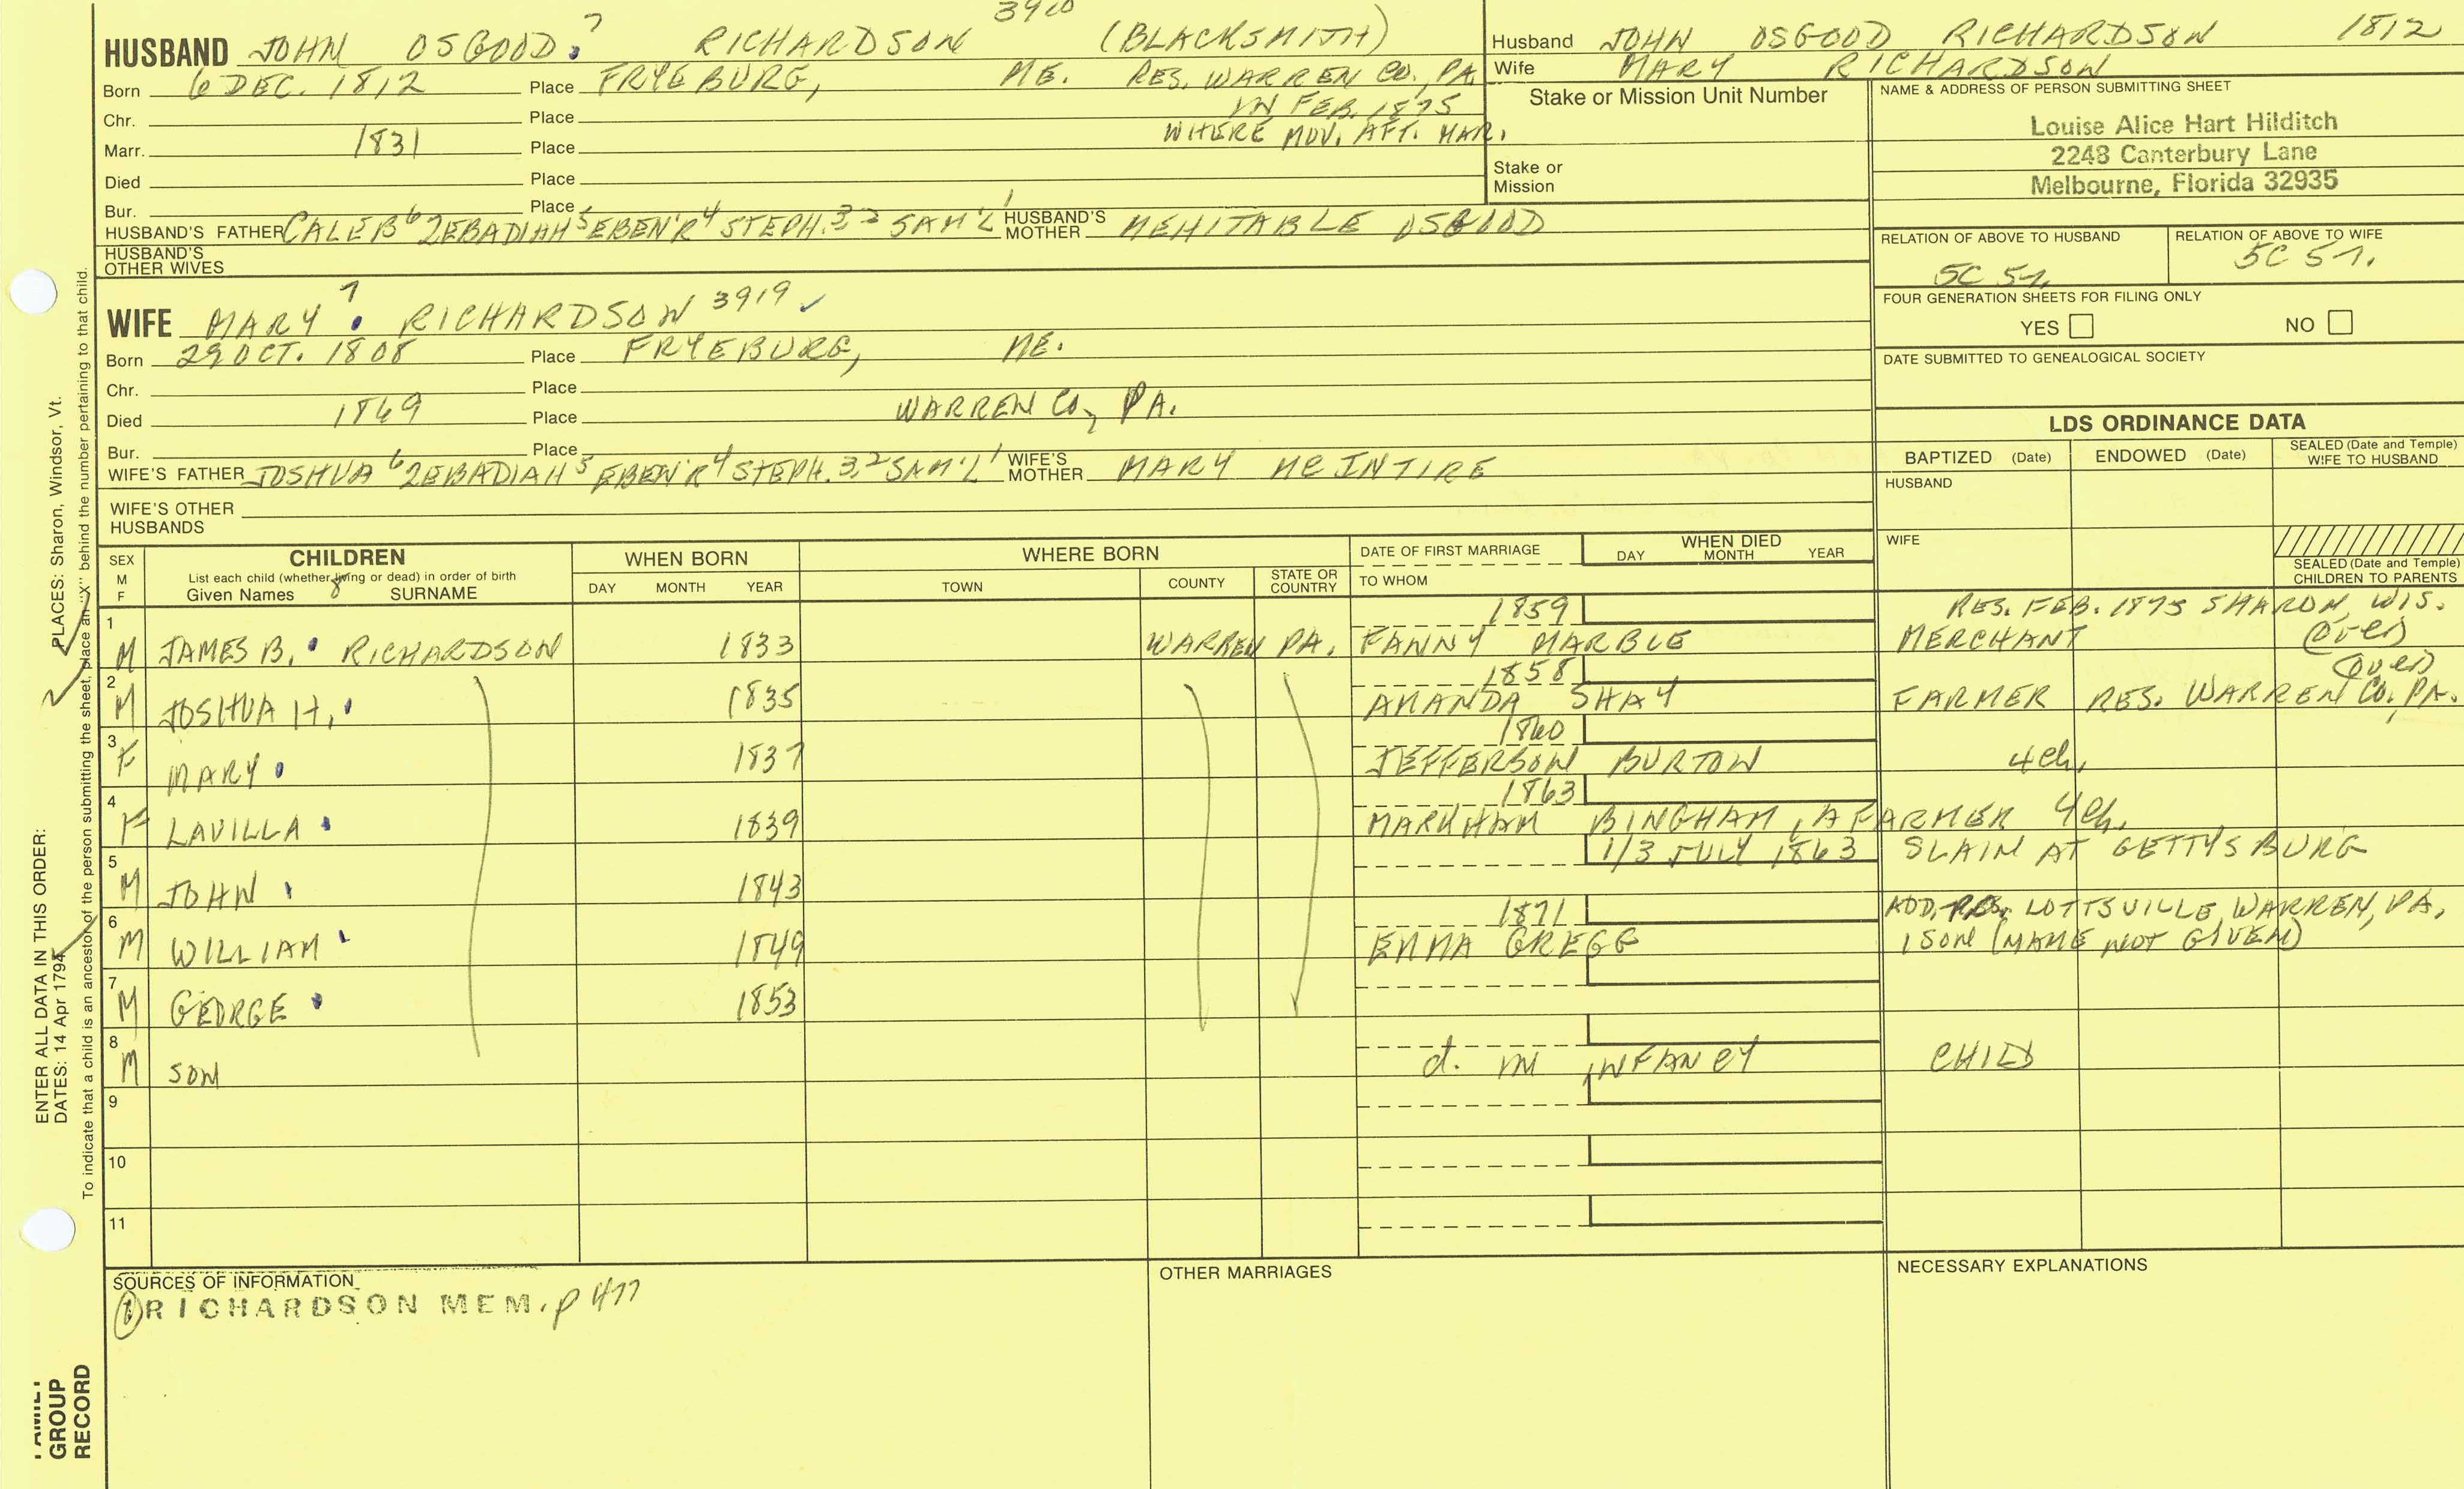 HUSBAND JOHN OSGOOD 7 RICHARDSON 3920 (BLACKSMITH)
Born 6 DEC. 1812 Place FRYEBURG, ME. RES. WARREN CO., PA
IN FEB. 1875
Chr. Place
WHERE MOV. AFT. MAR.
Marr. 1831 Place
Died Place
Bur. Place
HUSBAND'S FATHER CALEB 6 ZEBADIAH 5 EBEN'R 4 STEPH. 3, 2 SAM'L 1 HUSBAND'S MOTHER MEHITABLE OSGOOD
HUSBAND'S OTHER WIVES
Husband JOHN OSGOOD RICHARDSON 1812
Wife MARY RICHARDSON
Stake or Mission Unit Number
Stake or
Mission
NAME & ADDRESS OF PERSON SUBMITTING SHEET
Louise Alice Hart Hilditch
2248 Canterbury Lane
Melbourne, Florida 32935
RELATION OF ABOVE TO HUSBAND RELATION OF ABOVE TO WIFE
5C 5r. 5C 5r.
FOUR GENERATION SHEETS FOR FILING ONLY
YES NO
DATE SUBMITTED TO GENEALOGICAL SOCIETY
WIFE MARY 7 RICHARDSON 3919
Born 29 OCT. 1808 Place FRYEBURG, ME.
Chr. Place
Died 1869 Place WARREN CO., PA.
Bur. Place
WIFE'S FATHER JOSHUA 6 ZEBADIAH 5 EBEN'R 4 STEPH. 3, 2 SAM'L 1 WIFE'S MOTHER MARY MCINTIRE
WIFE'S OTHER
HUSBANDS
LDS ORDINANCE DATA
BAPTIZED (Date) ENDOWED (Date) SEALED (Date and Temple) WIFE TO HUSBAND
HUSBAND
WIFE
SEALED (Date and Temple) CHILDREN TO PARENTS
SEX M F CHILDREN WHEN BORN WHERE BORN DATE OF FIRST MARRIAGE WHEN DIED
List each child (whether living or dead) in order of birth
Given Names 8 SURNAME DAY MONTH YEAR TOWN COUNTY STATE OR COUNTRY TO WHOM DAY MONTH YEAR
1859 RES. FEB. 1875 SHARON, WIS.
1 M JAMES B. RICHARDSON 1833 WARREN PA. FANNY MARBLE MERCHANT (over)
1858 (over)
2 M JOSHUA H. 1835 AMANDA SHAY FARMER RES. WARREN CO., PA.
1860
3 F MARY 1837 JEFFERSON BURTON 4 ch.
1863
4 F LAVILLA 1839 MARKHAM BINGHAM, A FARMER 4 ch.
1/3 JULY 1863 SLAIN AT GETTYSBURG
5 M JOHN 1843
1871 ADD. RES. LOTTSVILLE, WARREN, PA.
6 M WILLIAM 1849 EMMA GREGG 1 SON (NAME NOT GIVEN)
7 M GEORGE 1853
8 M SON d. IN INFANCY CHILD
9
10
11
SOURCES OF INFORMATION
(1) RICHARDSON MEM. p 477
OTHER MARRIAGES
NECESSARY EXPLANATIONS
ENTER ALL DATA IN THIS ORDER:
DATES: 14 Apr 1794
PLACES: Sharon, Windsor, Vt.
To indicate that a child is an ancestor of the person submitting the sheet, place an "X" behind the number pertaining to that child.
FAMILY
GROUP
RECORD